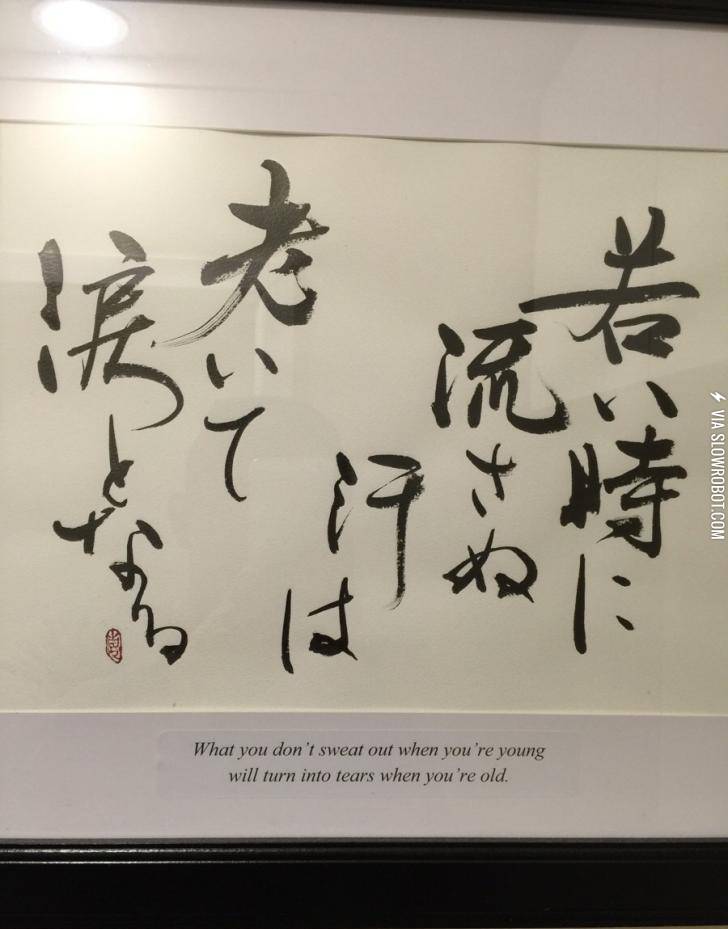 若い時に
流さぬ
汗は
老いて
涙となる
What you don't sweat out when you're young
will turn into tears when you're old.
VIA SLOWROBOT.COM